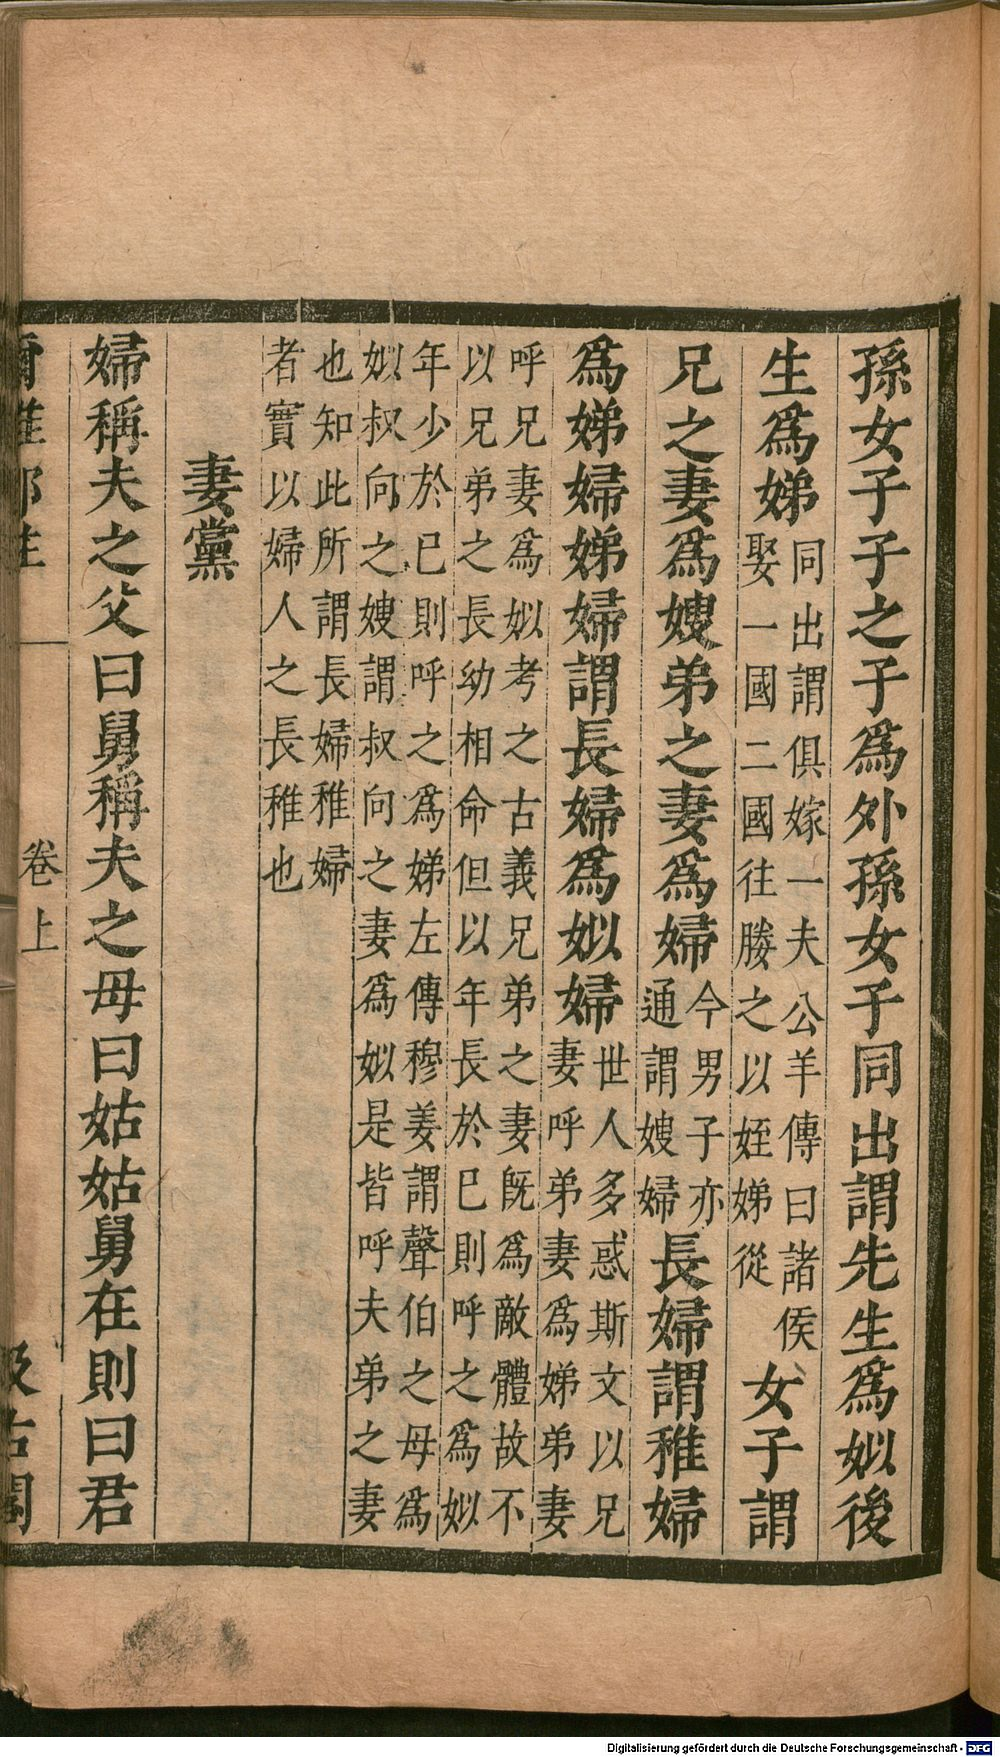 孫女子子之子為外孫女子同出謂先生為姒後
生為娣同出謂俱嫁一夫公羊傳曰諸侯娶一國二國往媵之以姪娣從女子謂
兄之妻為嫂弟之妻為婦今男子亦通謂嫂婦長婦謂稚婦
為娣婦娣婦謂長婦為姒婦世人多惑斯文以兄妻呼弟妻為娣弟妻
呼兄妻為姒考之古義兄弟之妻旣為敵體故不
以兄弟之長幼相命但以年長於已則呼之為姒
年少於已則呼之為娣左傳穆姜謂聲伯之母為
姒叔向之嫂謂叔向之妻為姒是皆呼夫弟之妻
也知此所謂長婦稚婦
者實以婦人之長稚也
妻黨
婦稱夫之父曰舅稱夫之母曰姑姑舅在則曰君
爾雅郭注
卷上
汲古閣
Digitalisierung gefördert durch die Deutsche Forschungsgemeinschaft - DFG